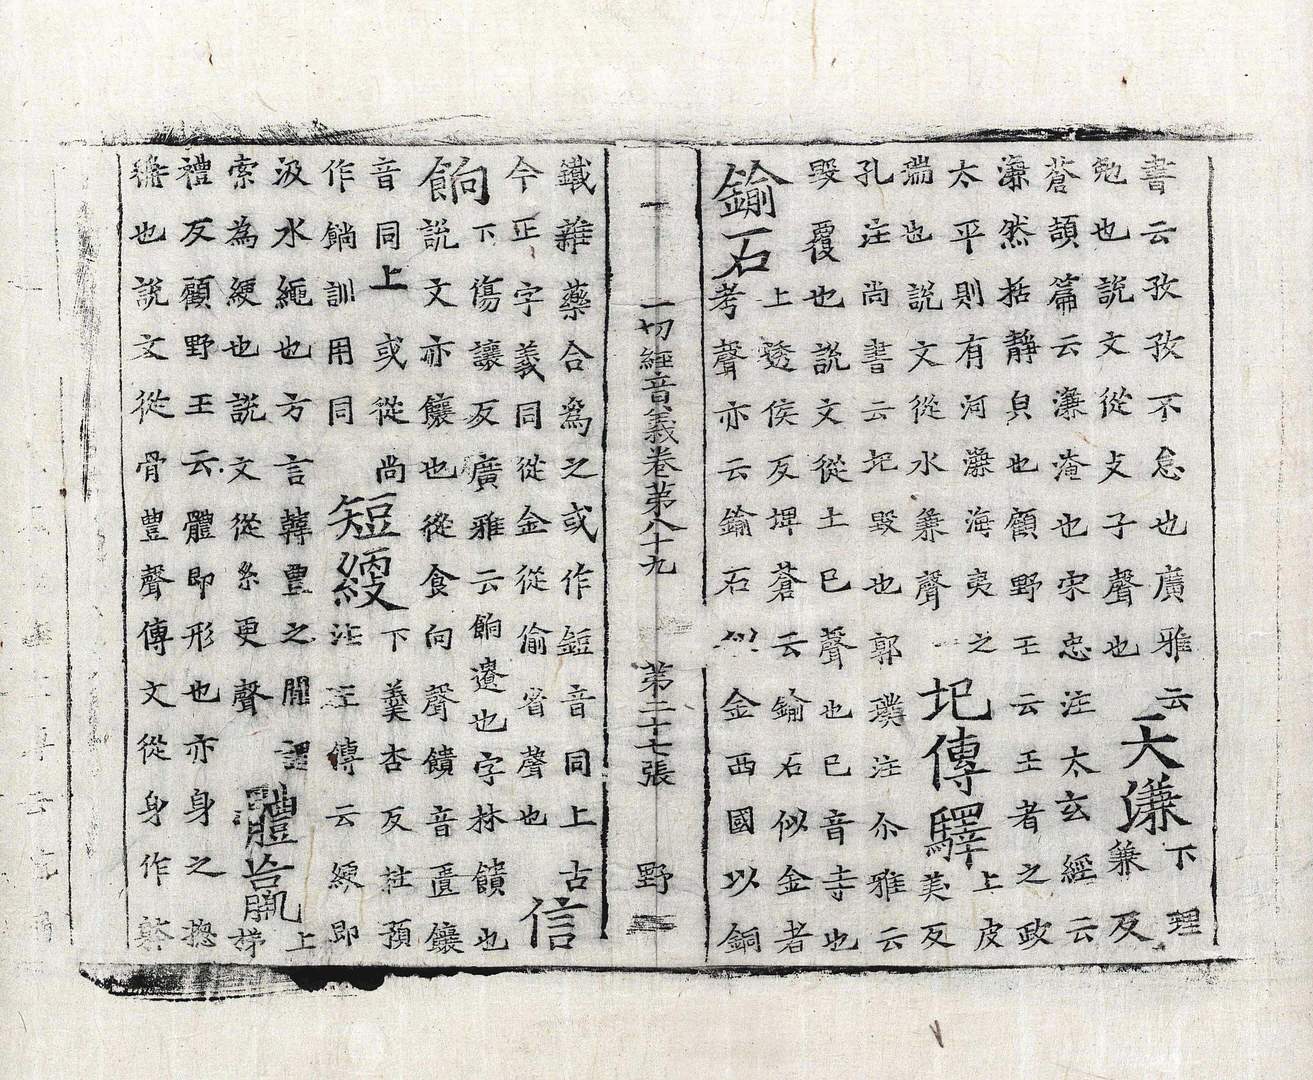 書云孜孜不怠也廣雅云天濂下理
勉也說文從攴子聲也兼反
蒼頡篇云濂淹也宋忠注太玄經云
濂然括靜貞也顧野王云王者之政
太平則有河濂海夷之上皮
瑞也說文從水兼聲圮傳驛美反
孔注尚書云圮毀也郭璞注尒雅云
毀覆也說文從土巳聲也巳音寺也
鍮石上透侯反埤蒼云鍮石似金者
考聲亦云鍮石似金西國以銅
一切經音義卷第八十九 第二十七張 野
鐵雜藥合為之或作䤱音同上古
今正字義同從金從偷省聲也信
餉下傷讓反廣雅云餉遺也字林饋也
說文亦饟也從食向聲饋音匱饟
音同上或從尚短綆下羹杏反杜預
作餉訓用同注左傳云綆即
汲水繩也方言韓豐之間謂上
索為綆也說文從糸更聲體羸梯
禮反顧野王云體即形也亦身之揔
稱也說文從骨豊聲傳文從身作